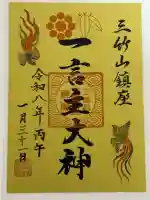 三竹山鎮座
一言主大神
令和八年丙午
一月三十一日